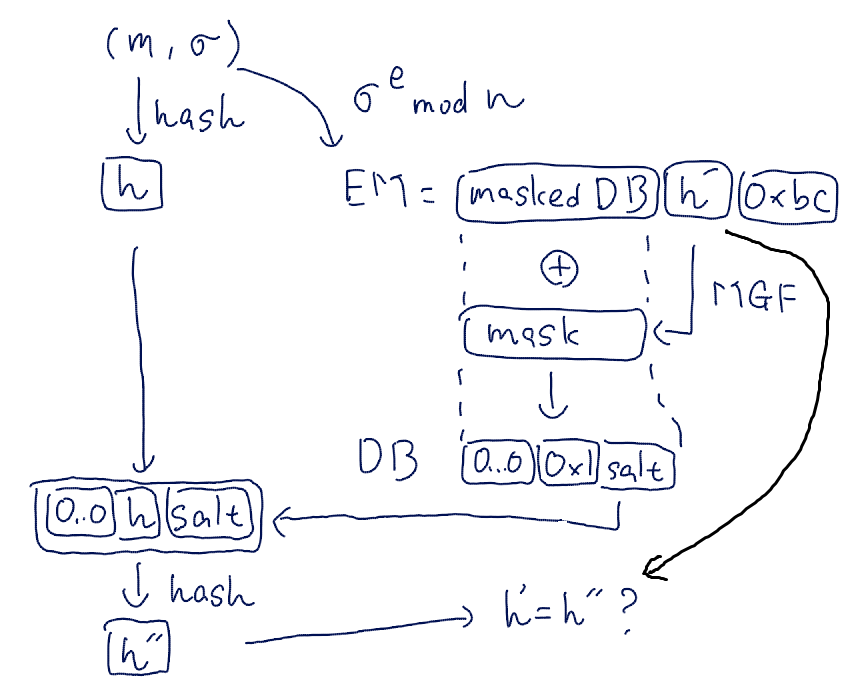 (m, σ)
hash
σ^e mod n
h
EM = masked DB h′ 0xbc
⊕
MGF
mask
DB 0..0 0x1 salt
0..0 h salt
hash
h′ = h″ ?
h″